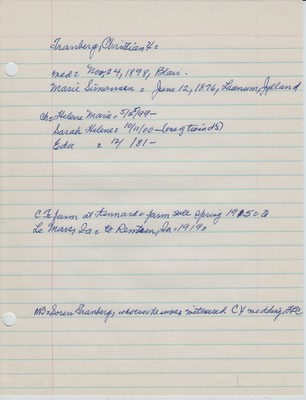 Tranberg, Christian X=
med= Nov, 24, 1898, Blair.
Marie Simonsen = June 12, 1876, Laanum, Jydland
Ch= Helene Marie= 5/25/99-
Sarah Helene= 10/11/00-(one of twins)
Eda = 12/ /81-
farm at Kennard= farm sale Spring 1915=to
Le Mars, Ia= to Remsen, Ia.-1919=
NB= Soren Tranberg, whoever he was, witnessed CX wedding